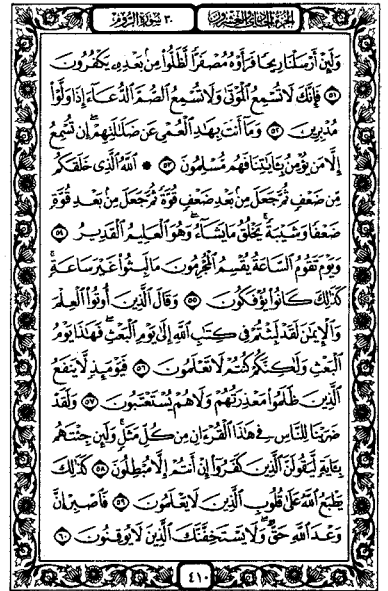 الجزء الحادي والعشرون ٣٠ سورة الروم
وَلَئِنْ أَرْسَلْنَا رِيحًا فَرَأَوْهُ مُصْفَرًّا لَّظَلُّوا مِنۢ بَعْدِهِۦ يَكْفُرُونَ
۝٥١ فَإِنَّكَ لَا تُسْمِعُ الْمَوْتَىٰ وَلَا تُسْمِعُ الصُّمَّ الدُّعَاءَ إِذَا وَلَّوْا
مُدْبِرِينَ ۝٥٢ وَمَا أَنتَ بِهَٰدِ الْعُمْىِ عَن ضَلَٰلَتِهِمْ ۖ إِن تُسْمِعُ
إِلَّا مَن يُؤْمِنُ بِـَٔايَٰتِنَا فَهُم مُّسْلِمُونَ ۝٥٣ ۞ اللَّهُ الَّذِى خَلَقَكُم
مِّن ضَعْفٍ ثُمَّ جَعَلَ مِنۢ بَعْدِ ضَعْفٍ قُوَّةً ثُمَّ جَعَلَ مِنۢ بَعْدِ قُوَّةٍ
ضَعْفًا وَشَيْبَةً ۚ يَخْلُقُ مَا يَشَاءُ ۖ وَهُوَ الْعَلِيمُ الْقَدِيرُ ۝٥٤
وَيَوْمَ تَقُومُ السَّاعَةُ يُقْسِمُ الْمُجْرِمُونَ مَا لَبِثُوا غَيْرَ سَاعَةٍ ۚ
كَذَٰلِكَ كَانُوا يُؤْفَكُونَ ۝٥٥ وَقَالَ الَّذِينَ أُوتُوا الْعِلْمَ
وَالْإِيمَٰنَ لَقَدْ لَبِثْتُمْ فِى كِتَٰبِ اللَّهِ إِلَىٰ يَوْمِ الْبَعْثِ ۖ فَهَٰذَا يَوْمُ
الْبَعْثِ وَلَٰكِنَّكُمْ كُنتُمْ لَا تَعْلَمُونَ ۝٥٦ فَيَوْمَئِذٍ لَّا يَنفَعُ
الَّذِينَ ظَلَمُوا مَعْذِرَتُهُمْ وَلَا هُمْ يُسْتَعْتَبُونَ ۝٥٧ وَلَقَدْ
ضَرَبْنَا لِلنَّاسِ فِى هَٰذَا الْقُرْءَانِ مِن كُلِّ مَثَلٍ ۚ وَلَئِن جِئْتَهُم
بِـَٔايَةٍ لَّيَقُولَنَّ الَّذِينَ كَفَرُوا إِنْ أَنتُمْ إِلَّا مُبْطِلُونَ ۝٥٨ كَذَٰلِكَ
يَطْبَعُ اللَّهُ عَلَىٰ قُلُوبِ الَّذِينَ لَا يَعْلَمُونَ ۝٥٩ فَاصْبِرْ إِنَّ
وَعْدَ اللَّهِ حَقٌّ ۖ وَلَا يَسْتَخِفَّنَّكَ الَّذِينَ لَا يُوقِنُونَ ۝٦٠
٤١٠